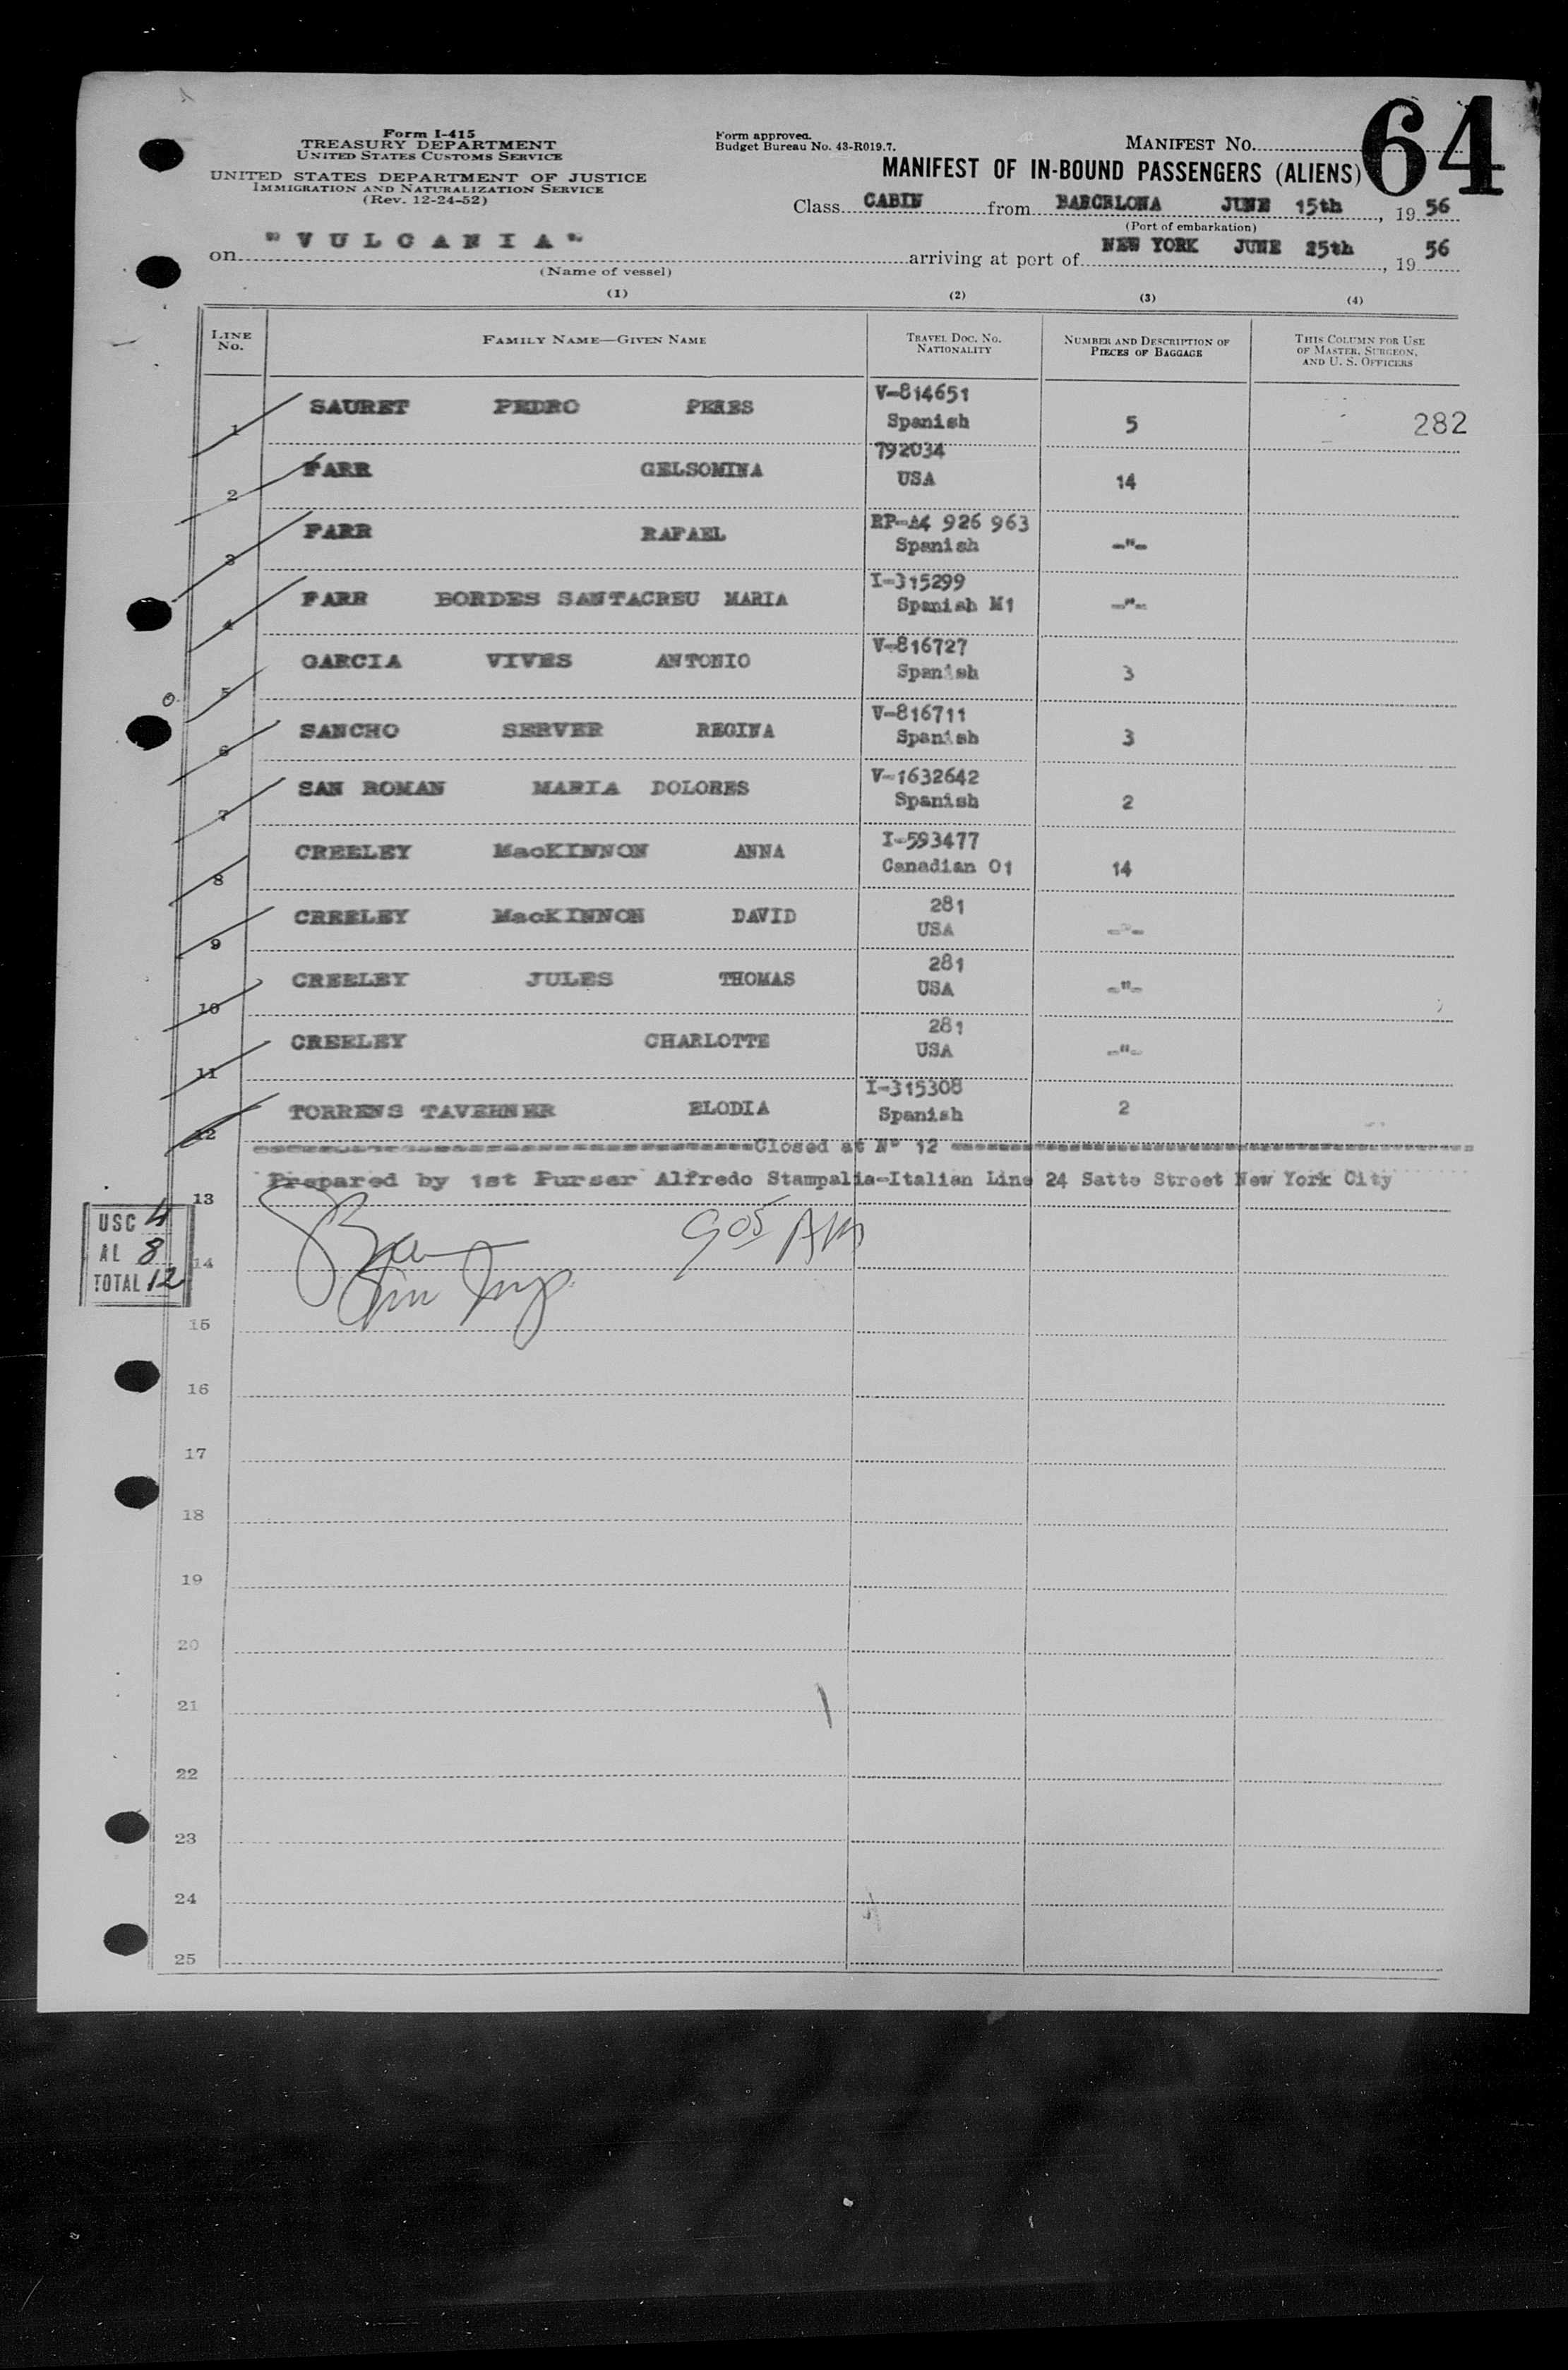 64
Form I-415
TREASURY DEPARTMENT
UNITED STATES CUSTOMS SERVICE
UNITED STATES DEPARTMENT OF JUSTICE
IMMIGRATION AND NATURALIZATION SERVICE
(Rev. 12-24-52)
Form approved.
Budget Bureau No. 43-R019.7.
MANIFEST No.
MANIFEST OF IN-BOUND PASSENGERS (ALIENS)
Class CABIN from BARCELONA JUNE 15th, 1956
(Port of embarkation)
on "VULCANIA" arriving at port of NEW YORK JUNE 25th, 1956
(Name of vessel)
(1) (2) (3) (4)
LINE No. FAMILY NAME—GIVEN NAME TRAVEL DOC. NO. NATIONALITY NUMBER AND DESCRIPTION OF PIECES OF BAGGAGE THIS COLUMN FOR USE OF MASTER, SURGEON, AND U. S. OFFICERS
1 SAURET PEDRO PERES V-814651 Spanish 5 282
2 FARR GELSOMINA 792034 USA 14
3 FARR RAFAEL RP-A4 926 963 Spanish -"-
4 FARR BORDES SANTACREU MARIA I-315299 Spanish M1 -"-
5 GARCIA VIVES ANTONIO V-816727 Spanish 3
6 SANCHO SERVER REGINA V-816711 Spanish 3
7 SAN ROMAN MARIA DOLORES V-1632642 Spanish 2
8 CREELEY MacKINNON ANNA I-593477 Canadian O1 14
9 CREELEY MacKINNON DAVID 281 USA -"-
10 CREELEY JULES THOMAS 281 USA -"-
11 CREELEY CHARLOTTE 281 USA -"-
12 TORRENS TAVERNER ELODIA I-315308 Spanish 2
Closed at N° 12
Prepared by 1st Purser Alfredo Stampalia-Italian Line 24 Satte Street New York City
13
USC 4
AL 8
TOTAL 12
905 AM
14
Imm Insp.
15
16
17
18
19
20
21
22
23
24
25